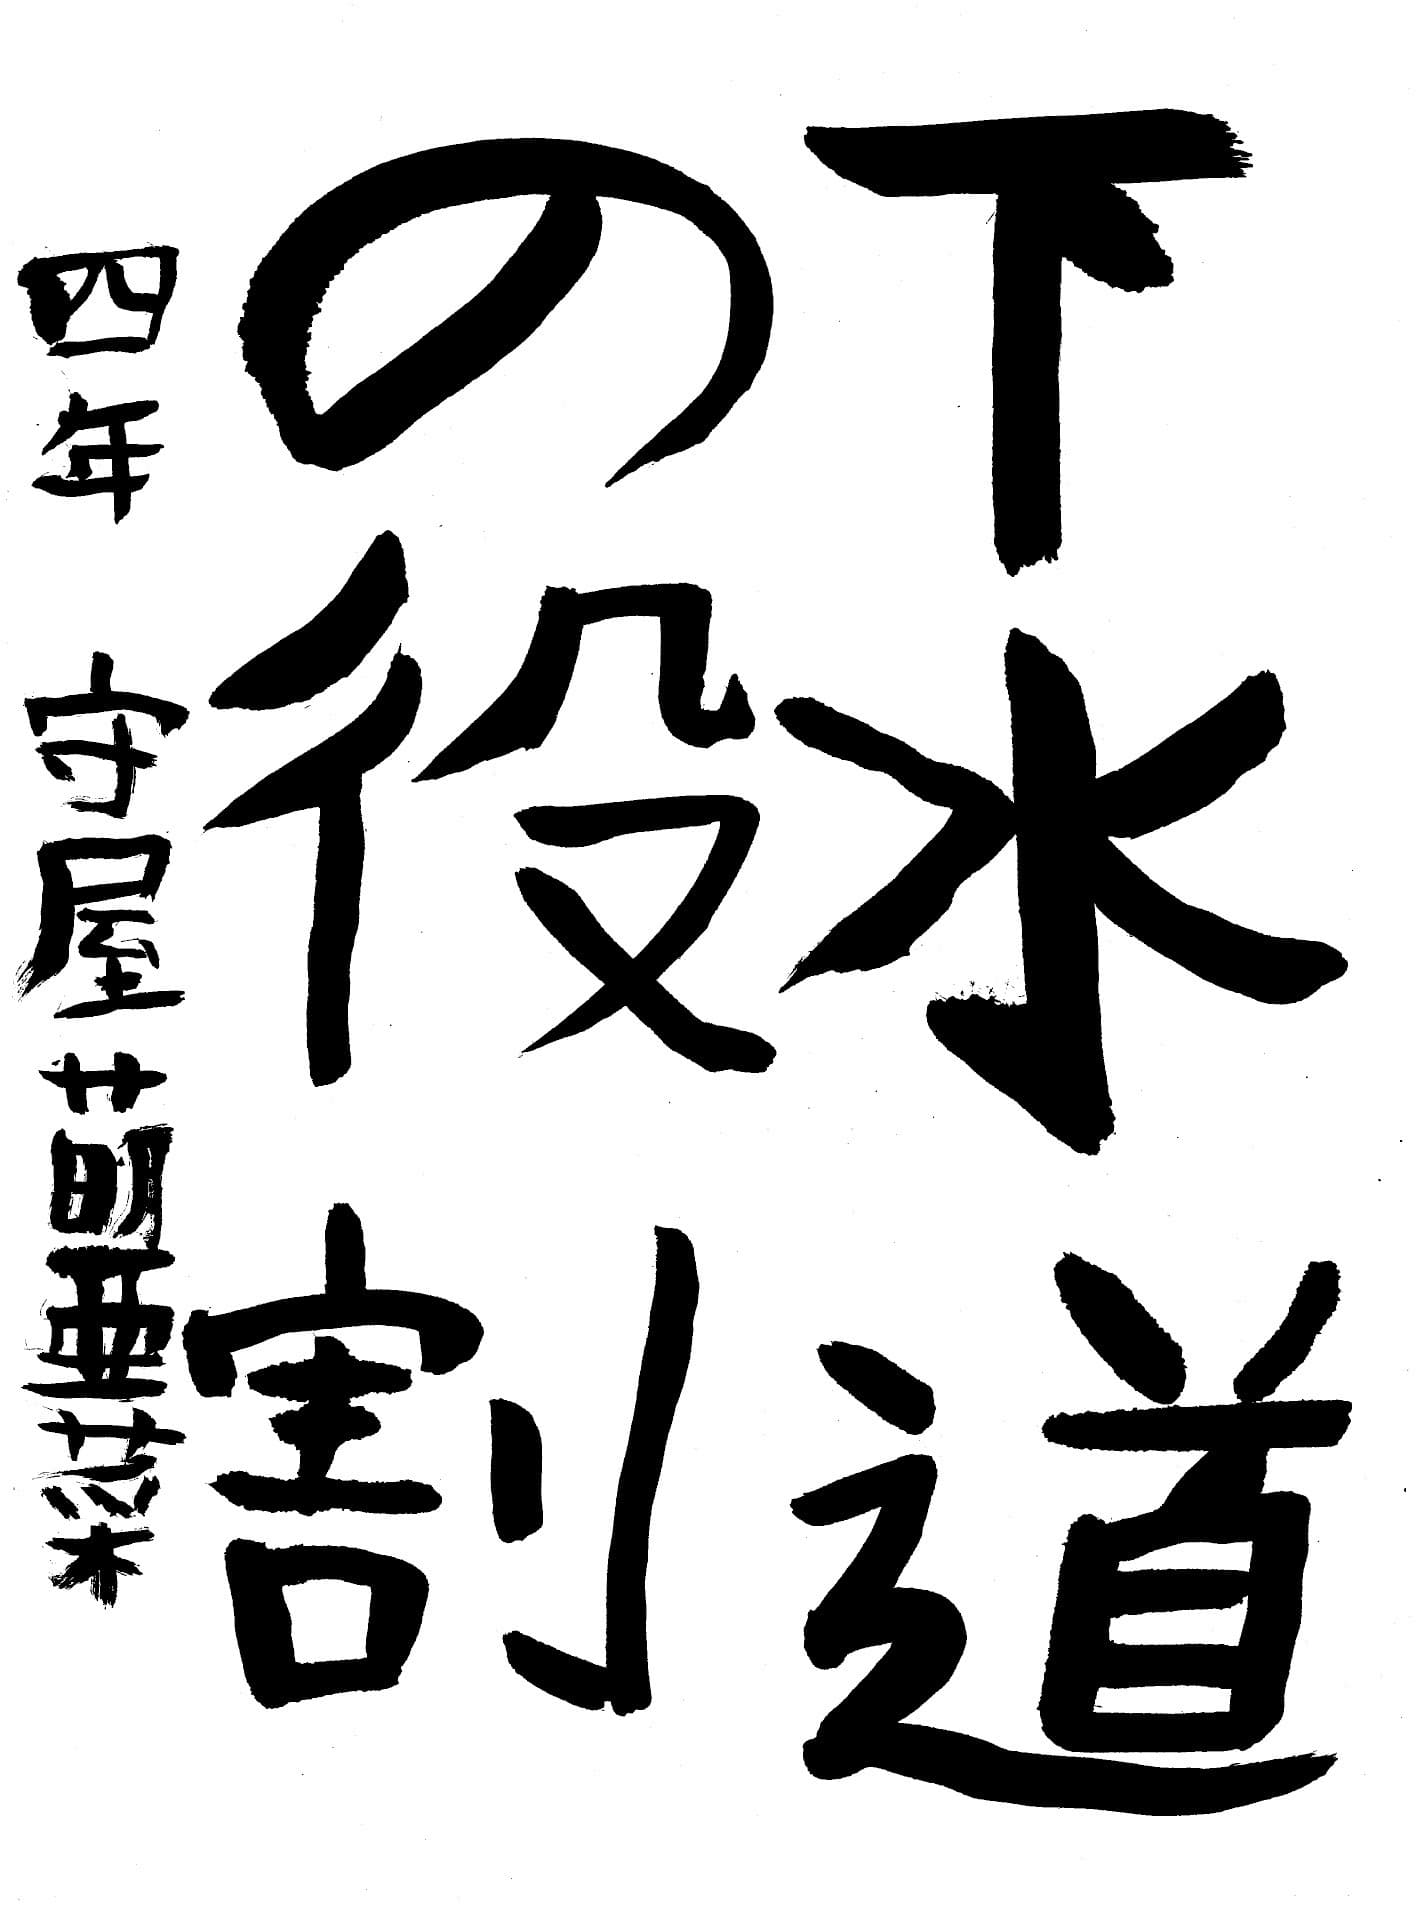 下水道
の役割
四年 守屋萌亜菜